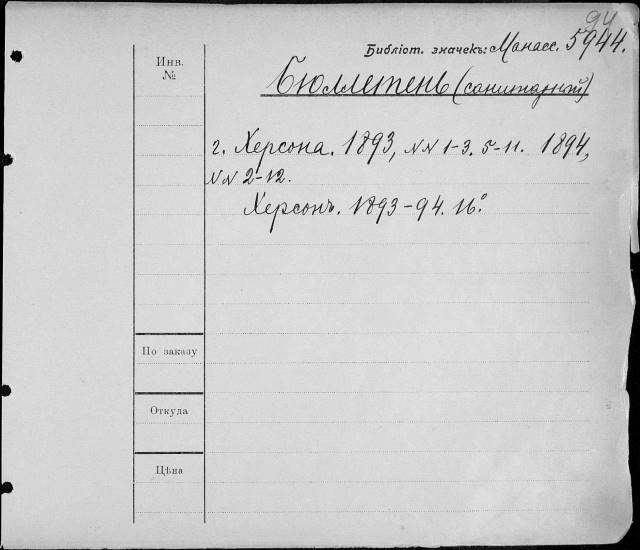 94
Библіот. значекъ: Манасс. 5944.
Инв.
№
Бюллетень (санитарный)
г. Херсона. 1893, NN 1-3. 5-11. 1894,
NN 2-12.
Херсонъ. 1893-94. 16°
По заказу
Откуда
Цѣна